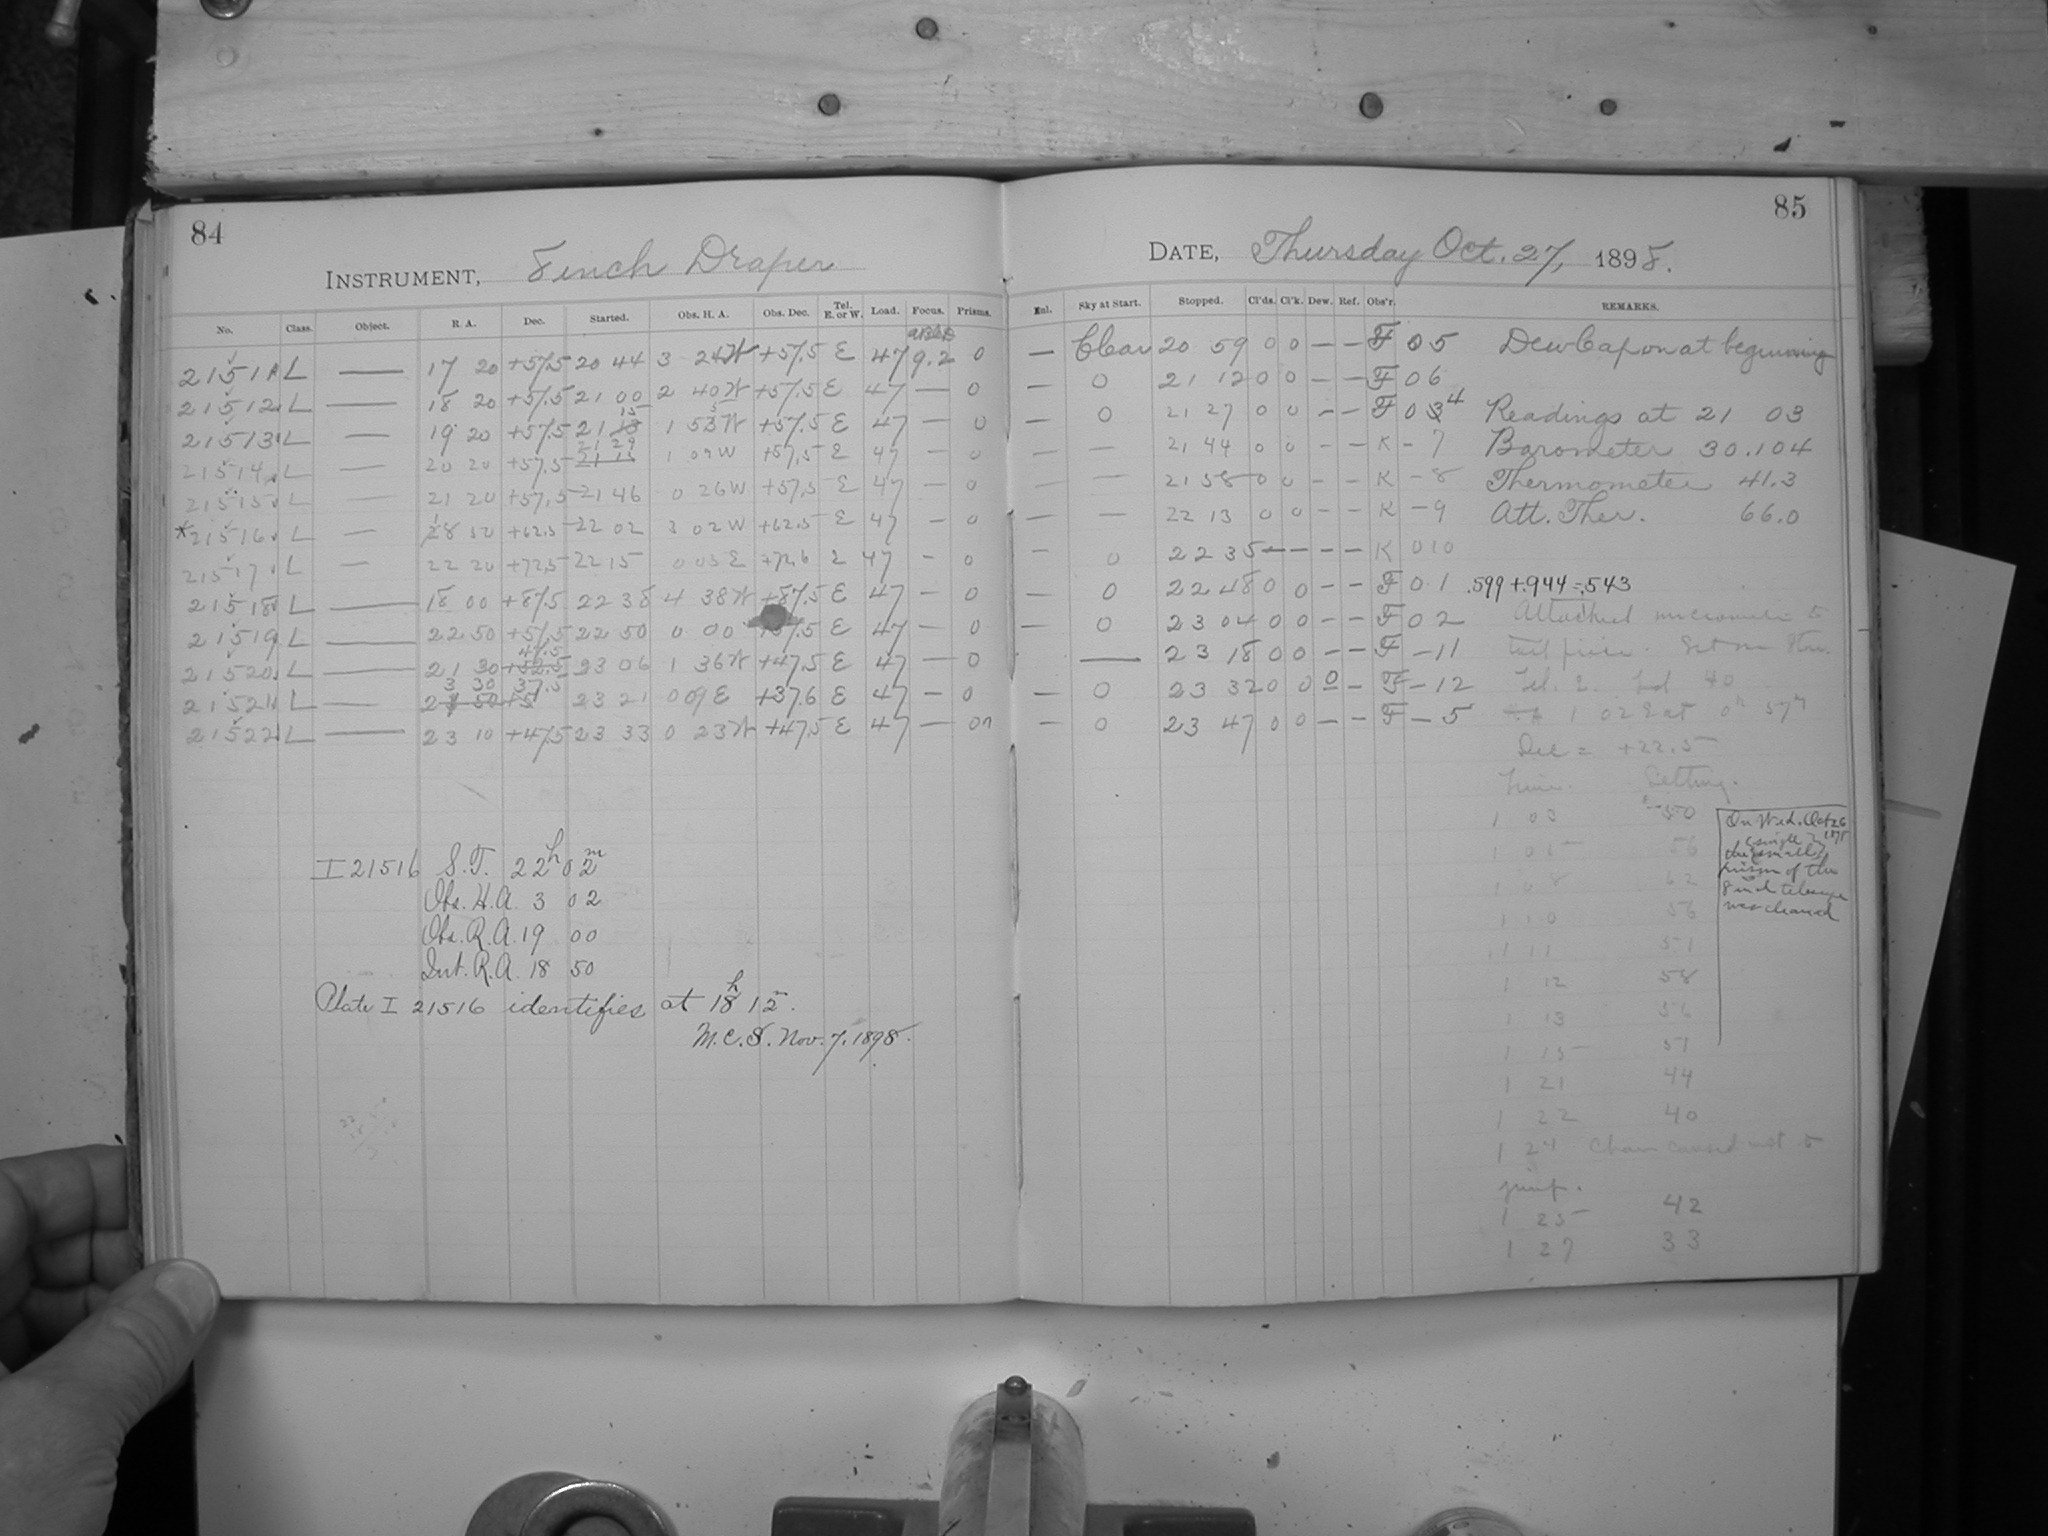 84
INSTRUMENT, 8 inch Draper
No. Class. Object. R. A. Dec. Started. Obs. H. A. Obs. Dec. Tel. E. or W. Load. Focus. Prisms.
21511 L — 17 20 +57.5 20 44 3 24 W +57.5 E 47 9.2 0
21512 L — 18 20 +57.5 21 00 2 40 W +57.5 E 47 — 0
21513 L — 19 20 +57.5 21 15 1 53 W +57.5 E 47 — 0
21514 L — 20 20 +57.5 21 29 1 09 W +57.5 E 47 — 0
21515 L — 21 20 +57.5 21 46 0 26 W +57.5 E 47 — 0
*21516 L — 18 50 +62.5 22 02 3 02 W +62.5 E 47 — 0
21517 L — 22 20 +72.5 22 15 0 05 E +72.6 E 47 — 0
21518 L — 18 00 +87.5 22 38 4 38 W +87.5 E 47 — 0
21519 L — 22 50 +57.5 22 50 0 00 +57.5 E 47 — 0
21520 L — 21 30 +52.5 47.5 23 06 1 36 W +47.5 E 47 — 0
21521 L — 3 30 37.5 23 21 0 09 E +37.6 E 47 — 0
21522 L — 23 10 +47.5 23 33 0 23 W +47.5 E 47 — 0
I 21516 S.T. 22h 02m
Obs. H.A. 3 02
Obs. R.A. 19 00
Int. R.A. 18 50
Plate I 21516 identifies at 18h 12m.
M.C.S. Nov. 7, 1898.
85
DATE, Thursday Oct. 27, 1898.
Enl. Sky at Start. Stopped. Cl'ds. Cl'k. Dew. Ref. Obs'r. REMARKS.
— Clear 20 59 0 0 — — F 0 5 Dew Cap on at beginning
— 0 21 12 0 0 — — F 0 6
— 0 21 27 0 0 — — F 0 3 4 Readings at 21 03
— — 21 44 0 0 — — K — 7 Barometer 30.104
— — 21 58 0 0 — — K — 8 Thermometer 41.3
— — 22 13 0 0 — — K — 9 Att. Ther. 66.0
— 0 22 35 — — — — K 0 10
— 0 22 48 0 0 — — F 0 1 .599 + .944 = .543
— 0 23 04 0 0 — — F 0 2 Attached micrometer to
— 23 18 0 0 — — F — 11 tail piece. Set on
— 0 23 32 0 0 0 — F — 12 Tel. E. Ld 40
— 0 23 47 0 0 — — F — 5 1 02 E at 0h 57m
Dec = +22.5
Time. Setting.
1 03 50
1 05 56
1 08 62
1 10 56
1 11 51
1 12 58
1 13 56
1 15 51
1 21 44
1 22 40
1 24 Chain caused not to
jump.
1 25 42
1 27 33
On Wed. Oct 26
1898
single
the small
prism of the
8 inch telescope
was cleaned